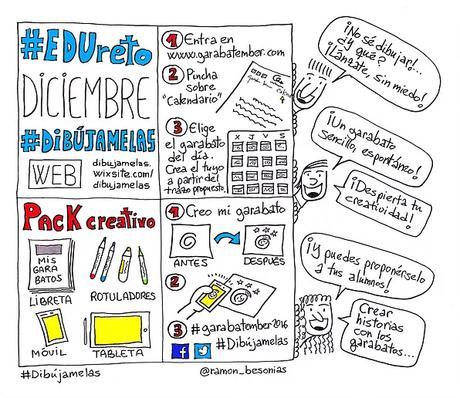 #EDUreto
DICIEMBRE
#DIBÚJAMELAS
WEB
dibujamelas.
wixsite.com/
dibujamelas
1 Entra en
www.garabatember.com
2 Pincha
sobre
"Calendario"
3 Elige
el garabato
del día.
Crea el tuyo
a partir del
trazo propuesto.
X J V S
PACK creativo
MIS
GARA
BATOS
LIBRETA
ROTULADORES
MÓVIL
TABLETA
1 Creo mi garabato
ANTES
DESPUÉS
2
3 #garabatember2016
#Dibújamelas
¡No sé dibujar!...
¿Y qué?
¡Lánzate, sin miedo!
¡Un garabato
sencillo, espontáneo!
¡Despierta tu
creatividad!
¡Y puedes proponérselo
a tus alumnos!
Crear
historias
con los
garabatos...
#Dibújamelas
@ramon_besonias